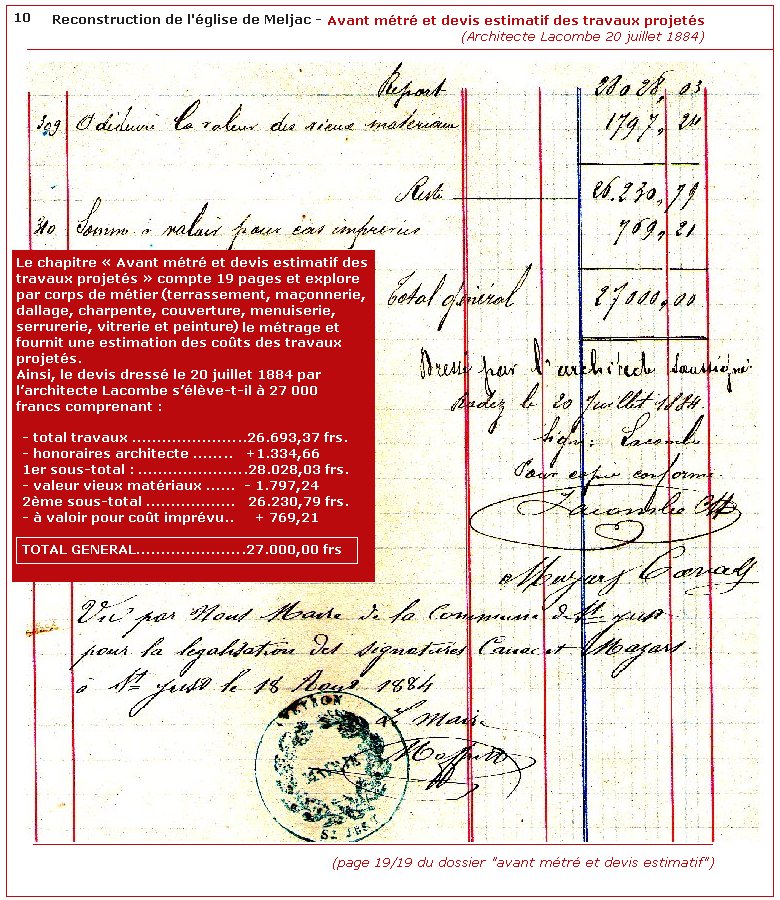 10 Reconstruction de l'église de Meljac - Avant métré et devis estimatif des travaux projetés
(Architecte Lacombe 20 juillet 1884)
Report 28028, 03
309 A déduire la valeur des vieux matériaux 1797, 24
Reste 26.230, 79
310 Somme à valoir pour cas imprévus 769, 21
Total général 27000, 00
Le chapitre « Avant métré et devis estimatif des
travaux projetés » compte 19 pages et explore
par corps de métier (terrassement, maçonnerie,
dallage, charpente, couverture, menuiserie,
serrurerie, vitrerie et peinture) le métrage et
fournit une estimation des coûts des travaux
projetés.
Ainsi, le devis dressé le 20 juillet 1884 par
l'architecte Lacombe s'élève-t-il à 27 000
francs comprenant :
- total travaux .......................26.693,37 frs.
- honoraires architecte ........ +1.334,66
1er sous-total : ......................28.028,03 frs.
- valeur vieux matériaux ...... - 1.797,24
2ème sous-total .................. 26.230,79 frs.
- à valoir pour coût imprévu.. + 769,21
TOTAL GENERAL......................27.000,00 frs
Dressé par l'architecte soussigné
Rodez le 20 Juillet 1884.
Signé: Lacombe
Pour copie conforme
Lacombe
Mazars Canac
Vu par Nous Maire de la Commune de St Just
pour la légalisation des signatures Canac et Mazars
à St Just le 18 Aout 1884
Le Maire
AVEYRON
MAIRIE
ST JUST
(page 19/19 du dossier "avant métré et devis estimatif")